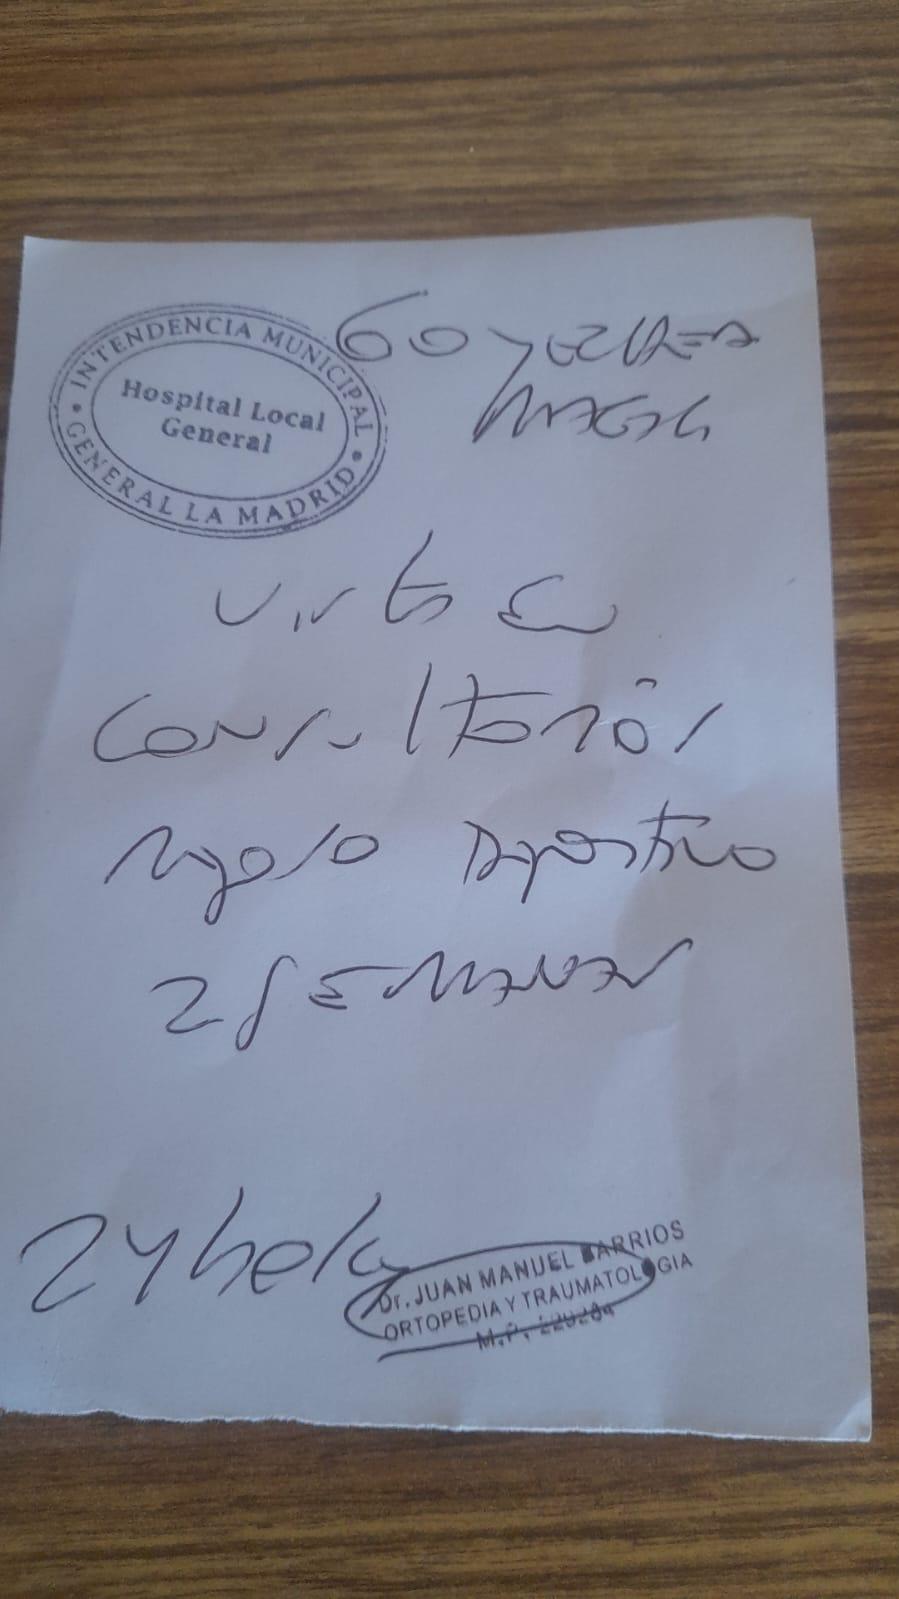 INTENDENCIA MUNICIPAL
Hospital Local
General
GENERAL LA MADRID
Visto en
Consultorios
reposo deportivo
2 SEMANAS
Dr. JUAN MANUEL BARRIOS
ORTOPEDIA Y TRAUMATOLOGIA
M.P.